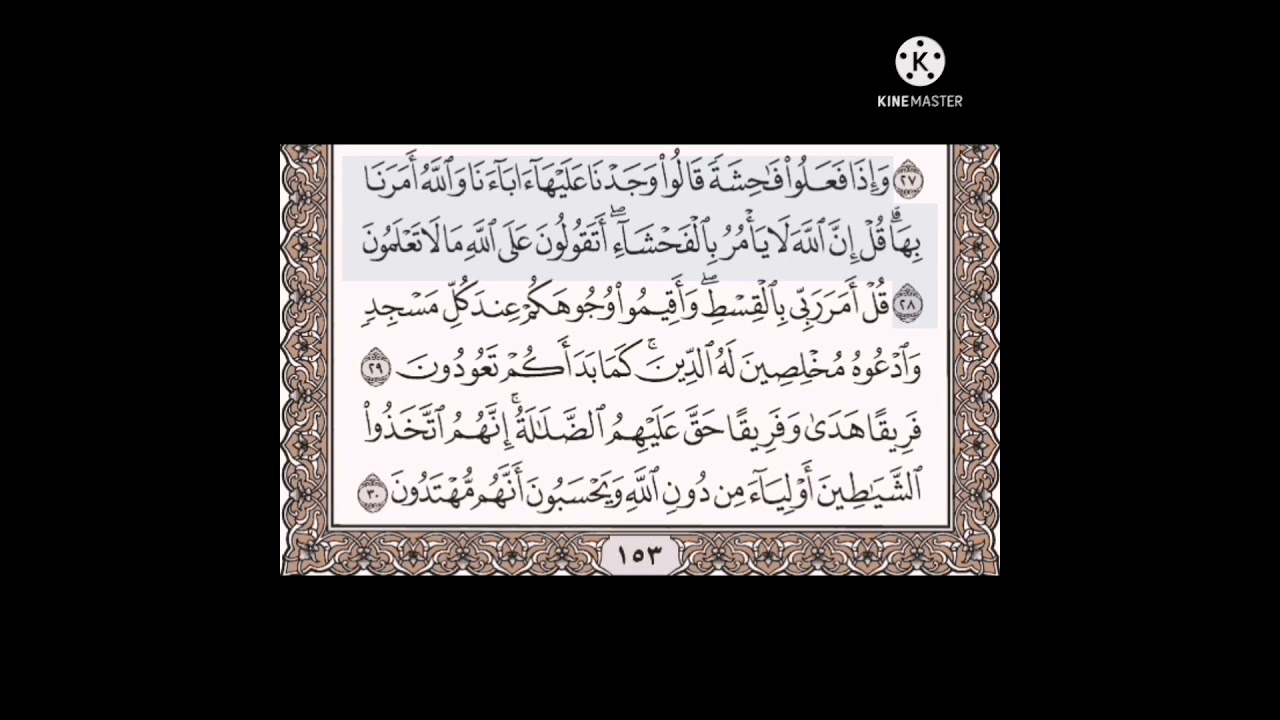 K
KINEMASTER
٢٧ وَإِذَا فَعَلُوا۟ فَـٰحِشَةً قَالُوا۟ وَجَدْنَا عَلَيْهَآ ءَابَآءَنَا وَٱللَّهُ أَمَرَنَا
بِهَا ۗ قُلْ إِنَّ ٱللَّهَ لَا يَأْمُرُ بِٱلْفَحْشَآءِ ۖ أَتَقُولُونَ عَلَى ٱللَّهِ مَا لَا تَعْلَمُونَ
٢٨ قُلْ أَمَرَ رَبِّى بِٱلْقِسْطِ ۖ وَأَقِيمُوا۟ وُجُوهَكُمْ عِندَ كُلِّ مَسْجِدٍ
وَٱدْعُوهُ مُخْلِصِينَ لَهُ ٱلدِّينَ ۚ كَمَا بَدَأَكُمْ تَعُودُونَ ٢٩
فَرِيقًا هَدَىٰ وَفَرِيقًا حَقَّ عَلَيْهِمُ ٱلضَّلَـٰلَةُ ۚ إِنَّهُمُ ٱتَّخَذُوا۟
ٱلشَّيَـٰطِينَ أَوْلِيَآءَ مِن دُونِ ٱللَّهِ وَيَحْسَبُونَ أَنَّهُم مُّهْتَدُونَ ٣٠
١٥٣